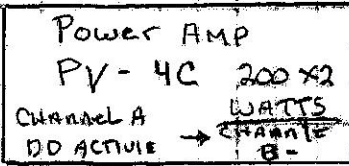 Power AMP
PV-4C 200x2
WATTS
CHANNEL A
DO ACTIVIE → CHANNTE
B-